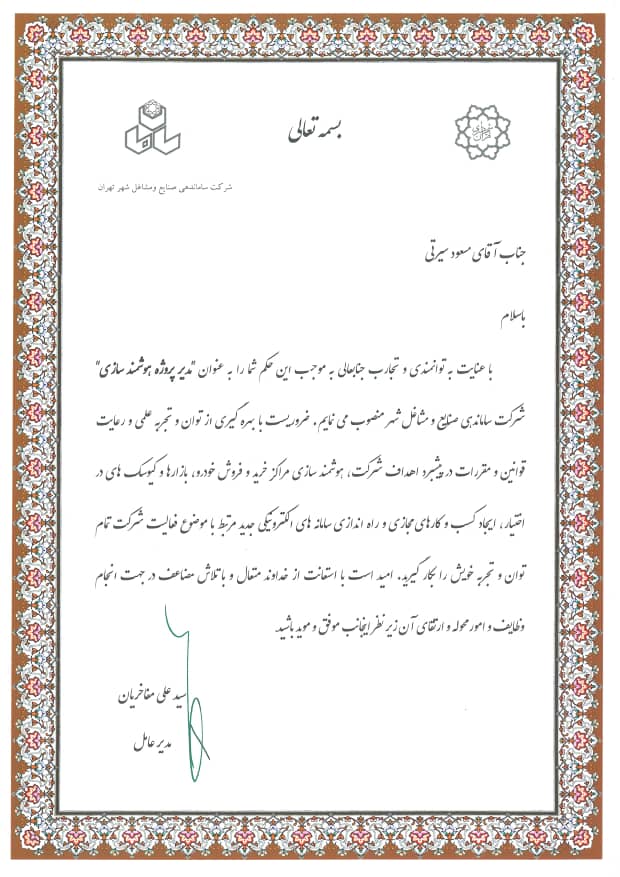 بسمه تعالی
شرکت ساماندهی صنایع ومشاغل شهر تهران
جناب آقای مسعود سیرتی
باسلام
با عنایت به توانمندی و تجارب جنابعالی به موجب این حکم شما را به عنوان "مدیر پروژه هوشمند سازی"
شرکت ساماندهی صنایع و مشاغل شهر منصوب می نمایم. ضروریست با بهره گیری از توان و تجربه علمی و رعایت
قوانین و مقررات در پیشبرد اهداف شرکت، هوشمند سازی مراکز خرید و فروش خودرو، بازارها و کیوسک های در
اختیار، ایجاد کسب و کارهای مجازی و راه اندازی سامانه های الکترونیکی جدید مرتبط با موضوع فعالیت شرکت تمام
توان و تجربه خویش را بکار گیرید. امید است با استعانت از خداوند متعال و با تلاش مضاعف در جهت انجام
وظایف و امور محوله و ارتقای آن زیر نظر اینجانب موفق و موید باشید
سید علی مفاخریان
مدیر عامل